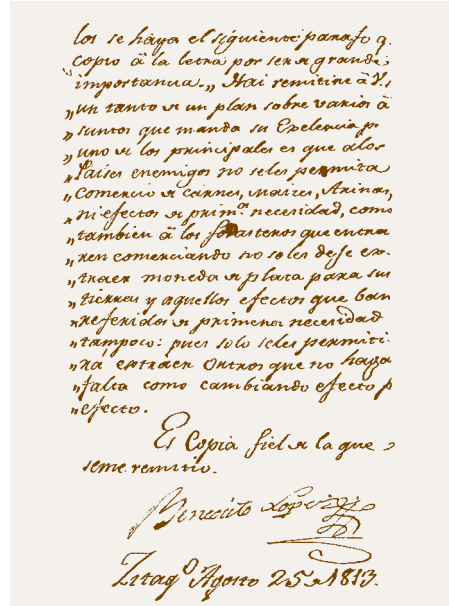 los se haya el siguiente parrafo q.
copio â la letra por ser de grande
importancia. „ Hai remitiré â V.s
„ un tanto de un plan sobre varios â
„ suntos que manda su Exelencia p.
„ uno de los principales es que alos
„ Paises enemigos no seles permita
„ comercio de carnes, Maizes, Arinas,
„ ni efectos de prim.ª necesidad, como
„ tambien â los forasteros que entra
„ ren comerciando no seles deje ex-
„ traer moneda de plata para sus
„ tierras y aquellos efectos que ban
„ referidos de primera necesidad
„ tampoco: pues solo seles permiti
„ rá extraer Ontros que no haya
„ falta como cambiando efecto p
„ efecto.
Es Copia fiel de la que
seme remitio.
Benedicto Lopez
Zitaq.º Agosto 25 de 1813.